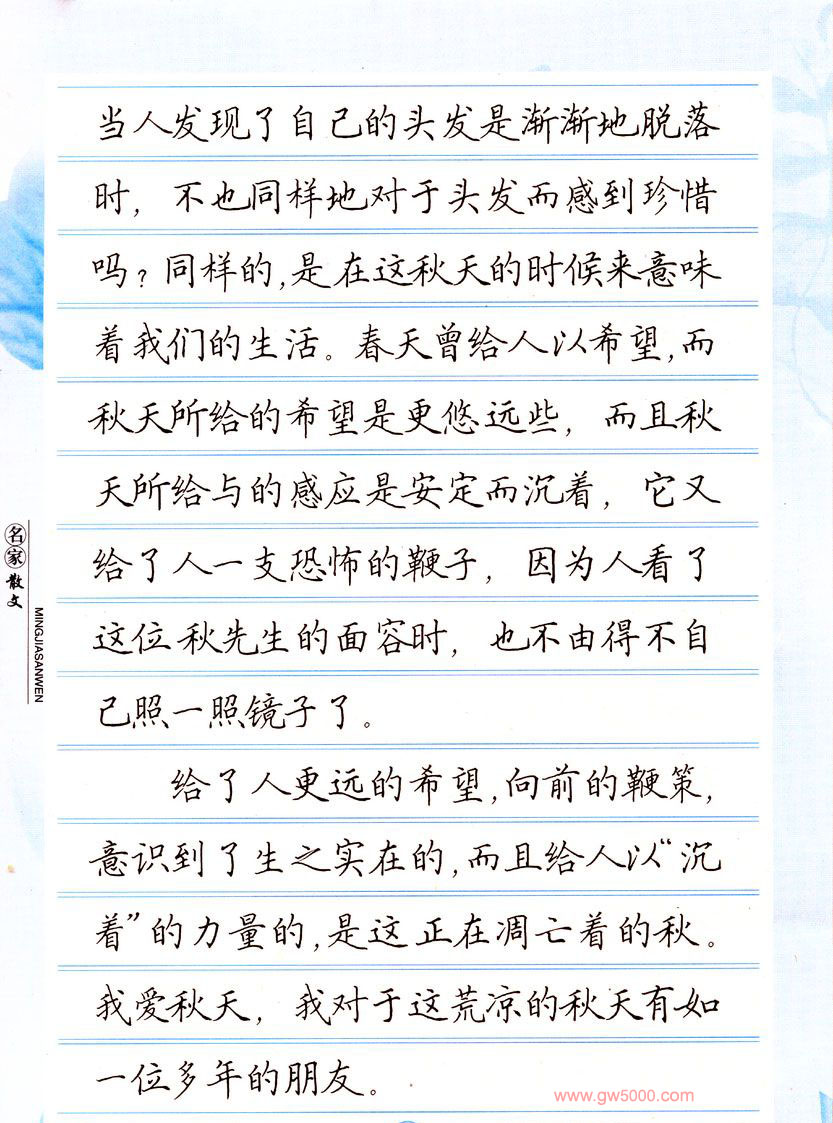 当人发现了自己的头发是渐渐地脱落
时，不也同样地对于头发而感到珍惜
吗？同样的，是在这秋天的时候来意味
着我们的生活。春天曾给人以希望，而
秋天所给的希望是更悠远些，而且秋
天所给与的感应是安定而沉着，它又
给了人一支恐怖的鞭子，因为人看了
这位秋先生的面容时，也不由得不自
己照一照镜子了。
给了人更远的希望，向前的鞭策，
意识到了生之实在的，而且给人以“沉
着”的力量的，是这正在凋亡着的秋。
我爱秋天，我对于这荒凉的秋天有如
一位多年的朋友。
名家散文
MINGJIASANWEN
www.gw5000.com